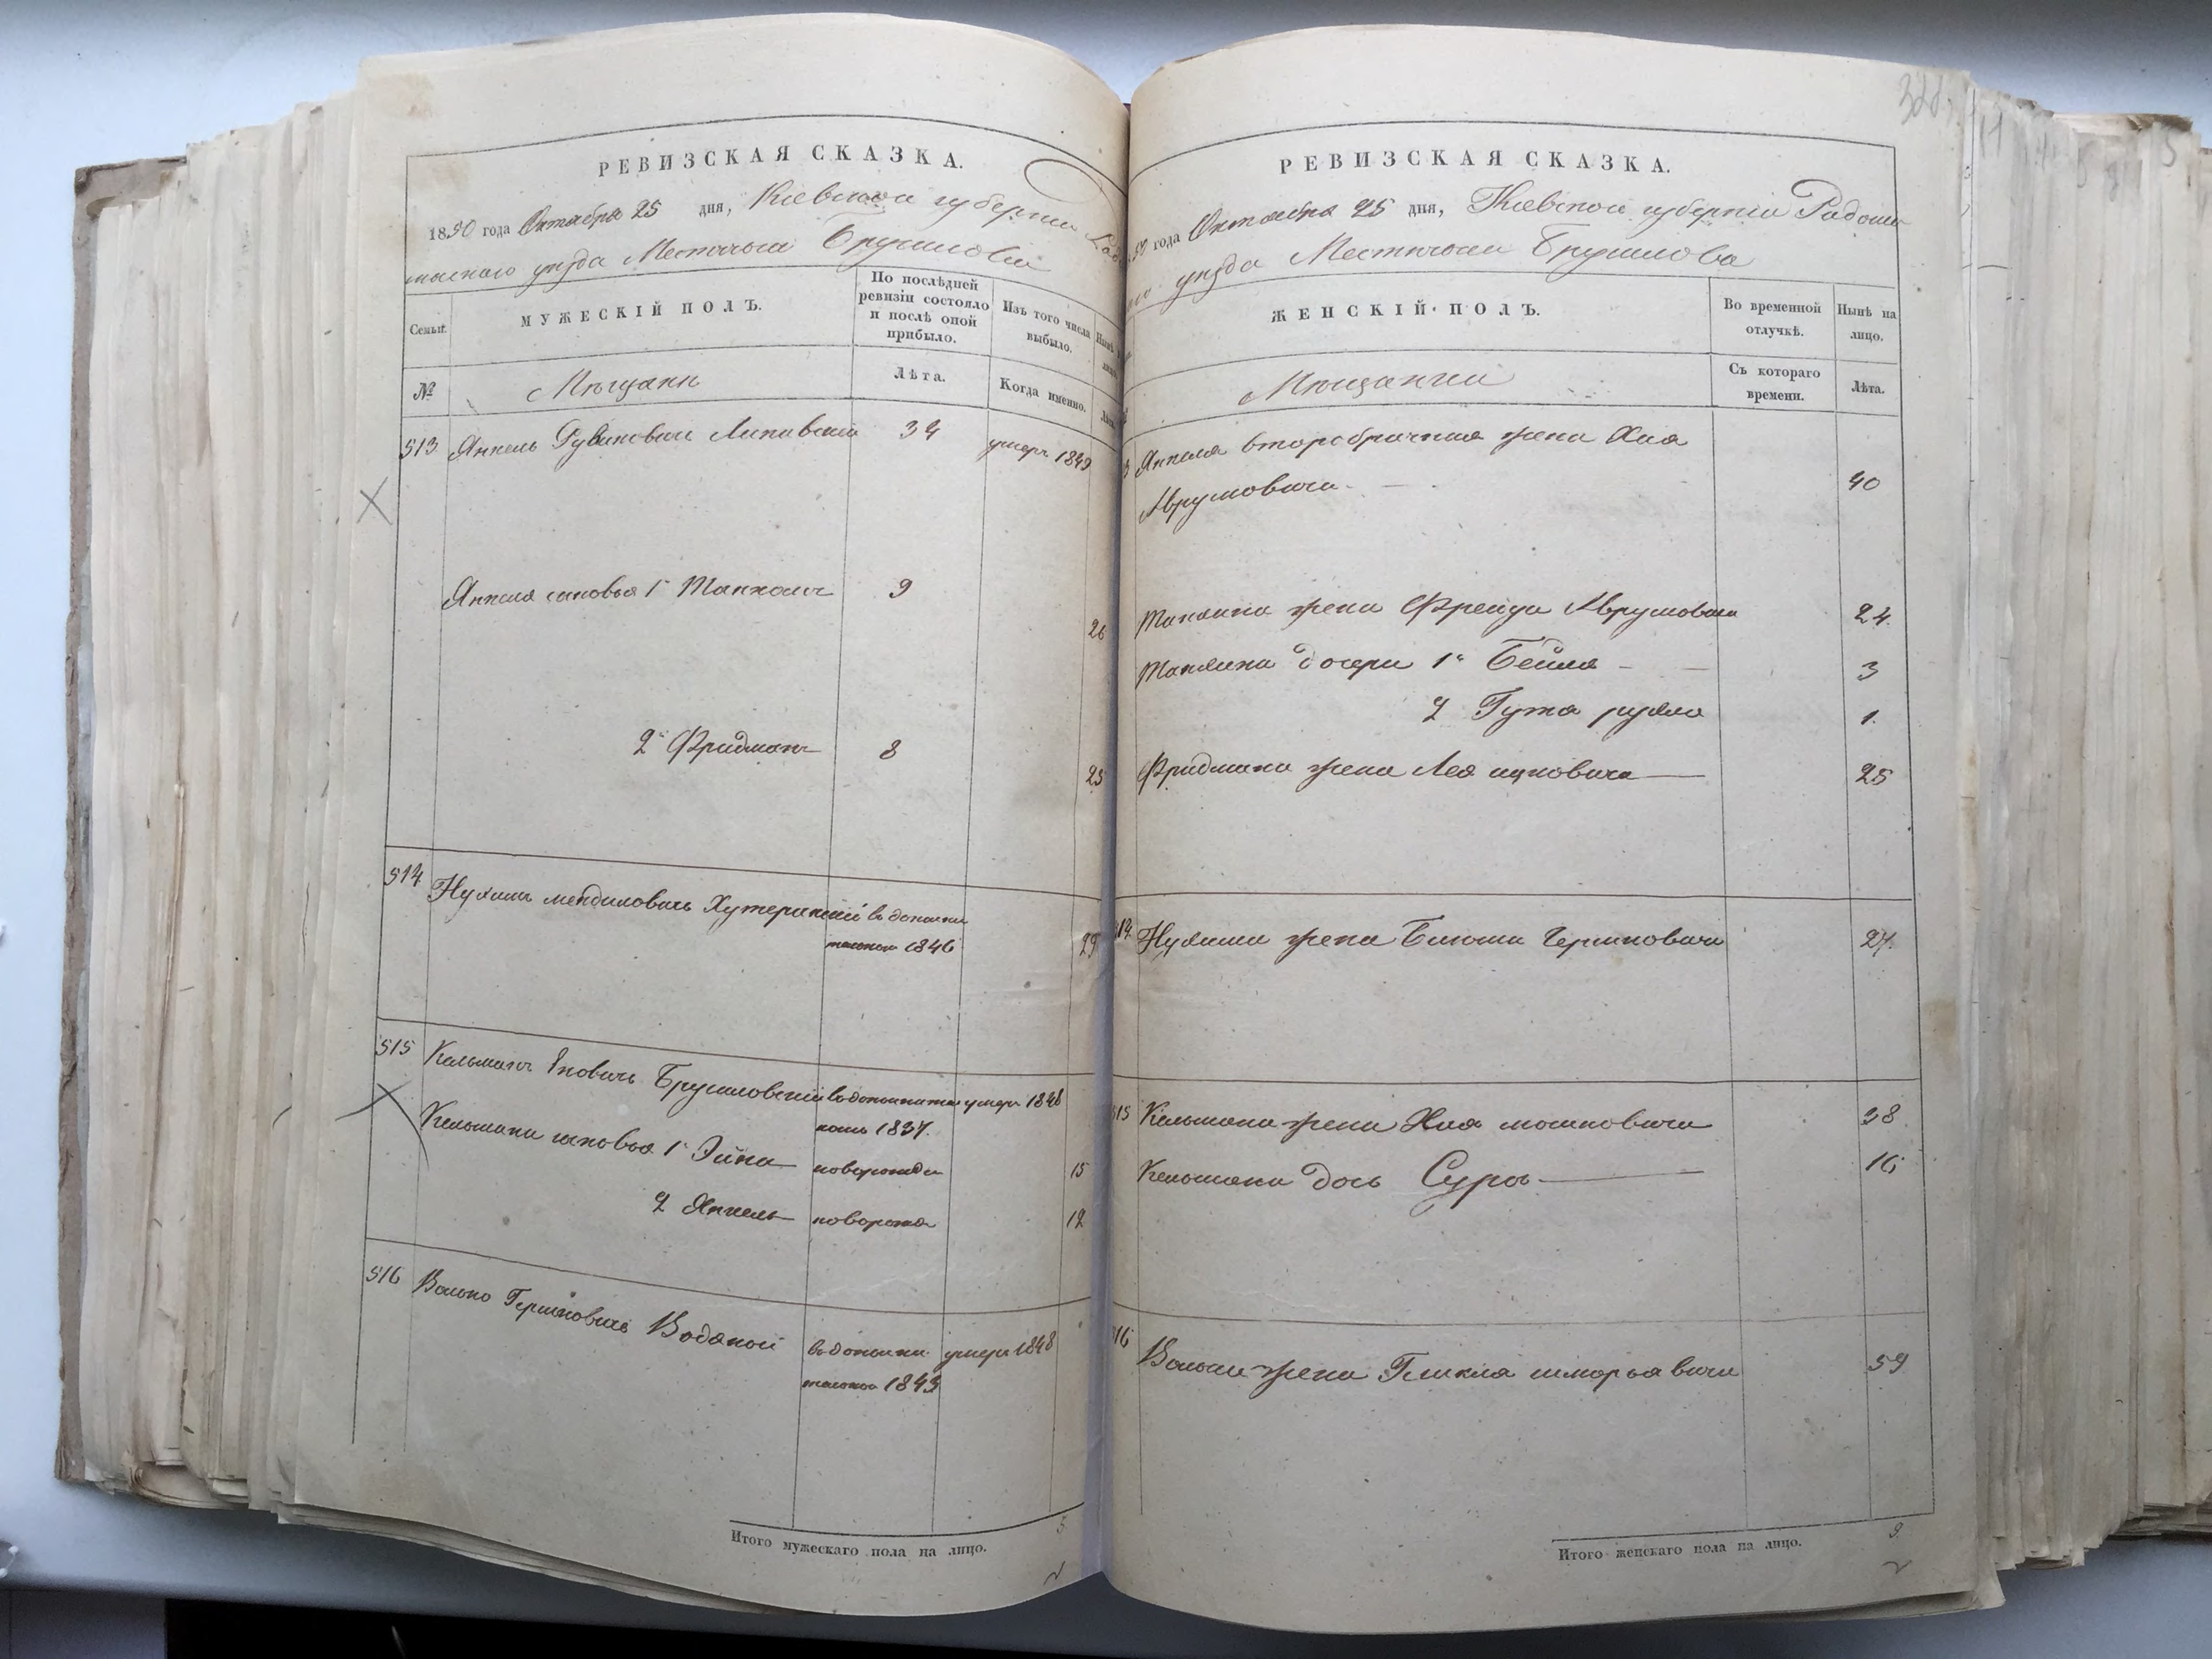 РЕВИЗСКАЯ СКАЗКА.
1850 года Октября 25 дня, Киевской губернии Радо
мысльского уезда Местечка Брусилова
Семьи.
МУЖЕСКІЙ ПОЛЪ.
По послѣдней
ревизіи состояло
и послѣ оной
прибыло.
Изъ того числа
выбыло.
№
Мѣщане
Лѣта.
Когда именно.
513 Янкель Рувинович Липавский 34 умер 1849
Янкеля сыновья 1й Манхаил 9
26
2й Фридман 8
25
514 Нухим Менделович Хутерянский в дополни
тельной 1846 29
515 Кельман Янович Брусиловский в дополнитель умер 1848
ной 1837.
Кельмана сыновья 1й Эйна новорожден 15
2 Янкель новорожд 12
516 Волько Гершкович Водяной в дополни умер 1848
тельной 1843
Итого мужескаго пола на лицо. 5
328
РЕВИЗСКАЯ СКАЗКА.
50 года Октября 25 дня, Киевской губернии Радомы
уезда Местечка Брусилова
ЖЕНСКІЙ ПОЛЪ.
Во временной
отлучкѣ.
Нынѣ на
лицо.
Мещанки
Съ котораго
времени.
Лѣта.
Янкеля второбрачная жена Хая
Аврумовича 40
жена Фрейда Аврумовича 24
дочери 1я Бейла 3
2 Гута рухля 1.
Фридмана жена Лея ицковича 25
514 Нухима жена Гершковича 27.
515 Кельмана жена Хая мошковича 38
Кельмана дочь Сура 16
516 Волька жена Гликля шморьявича 59
Итого женскаго пола на лицо. 9